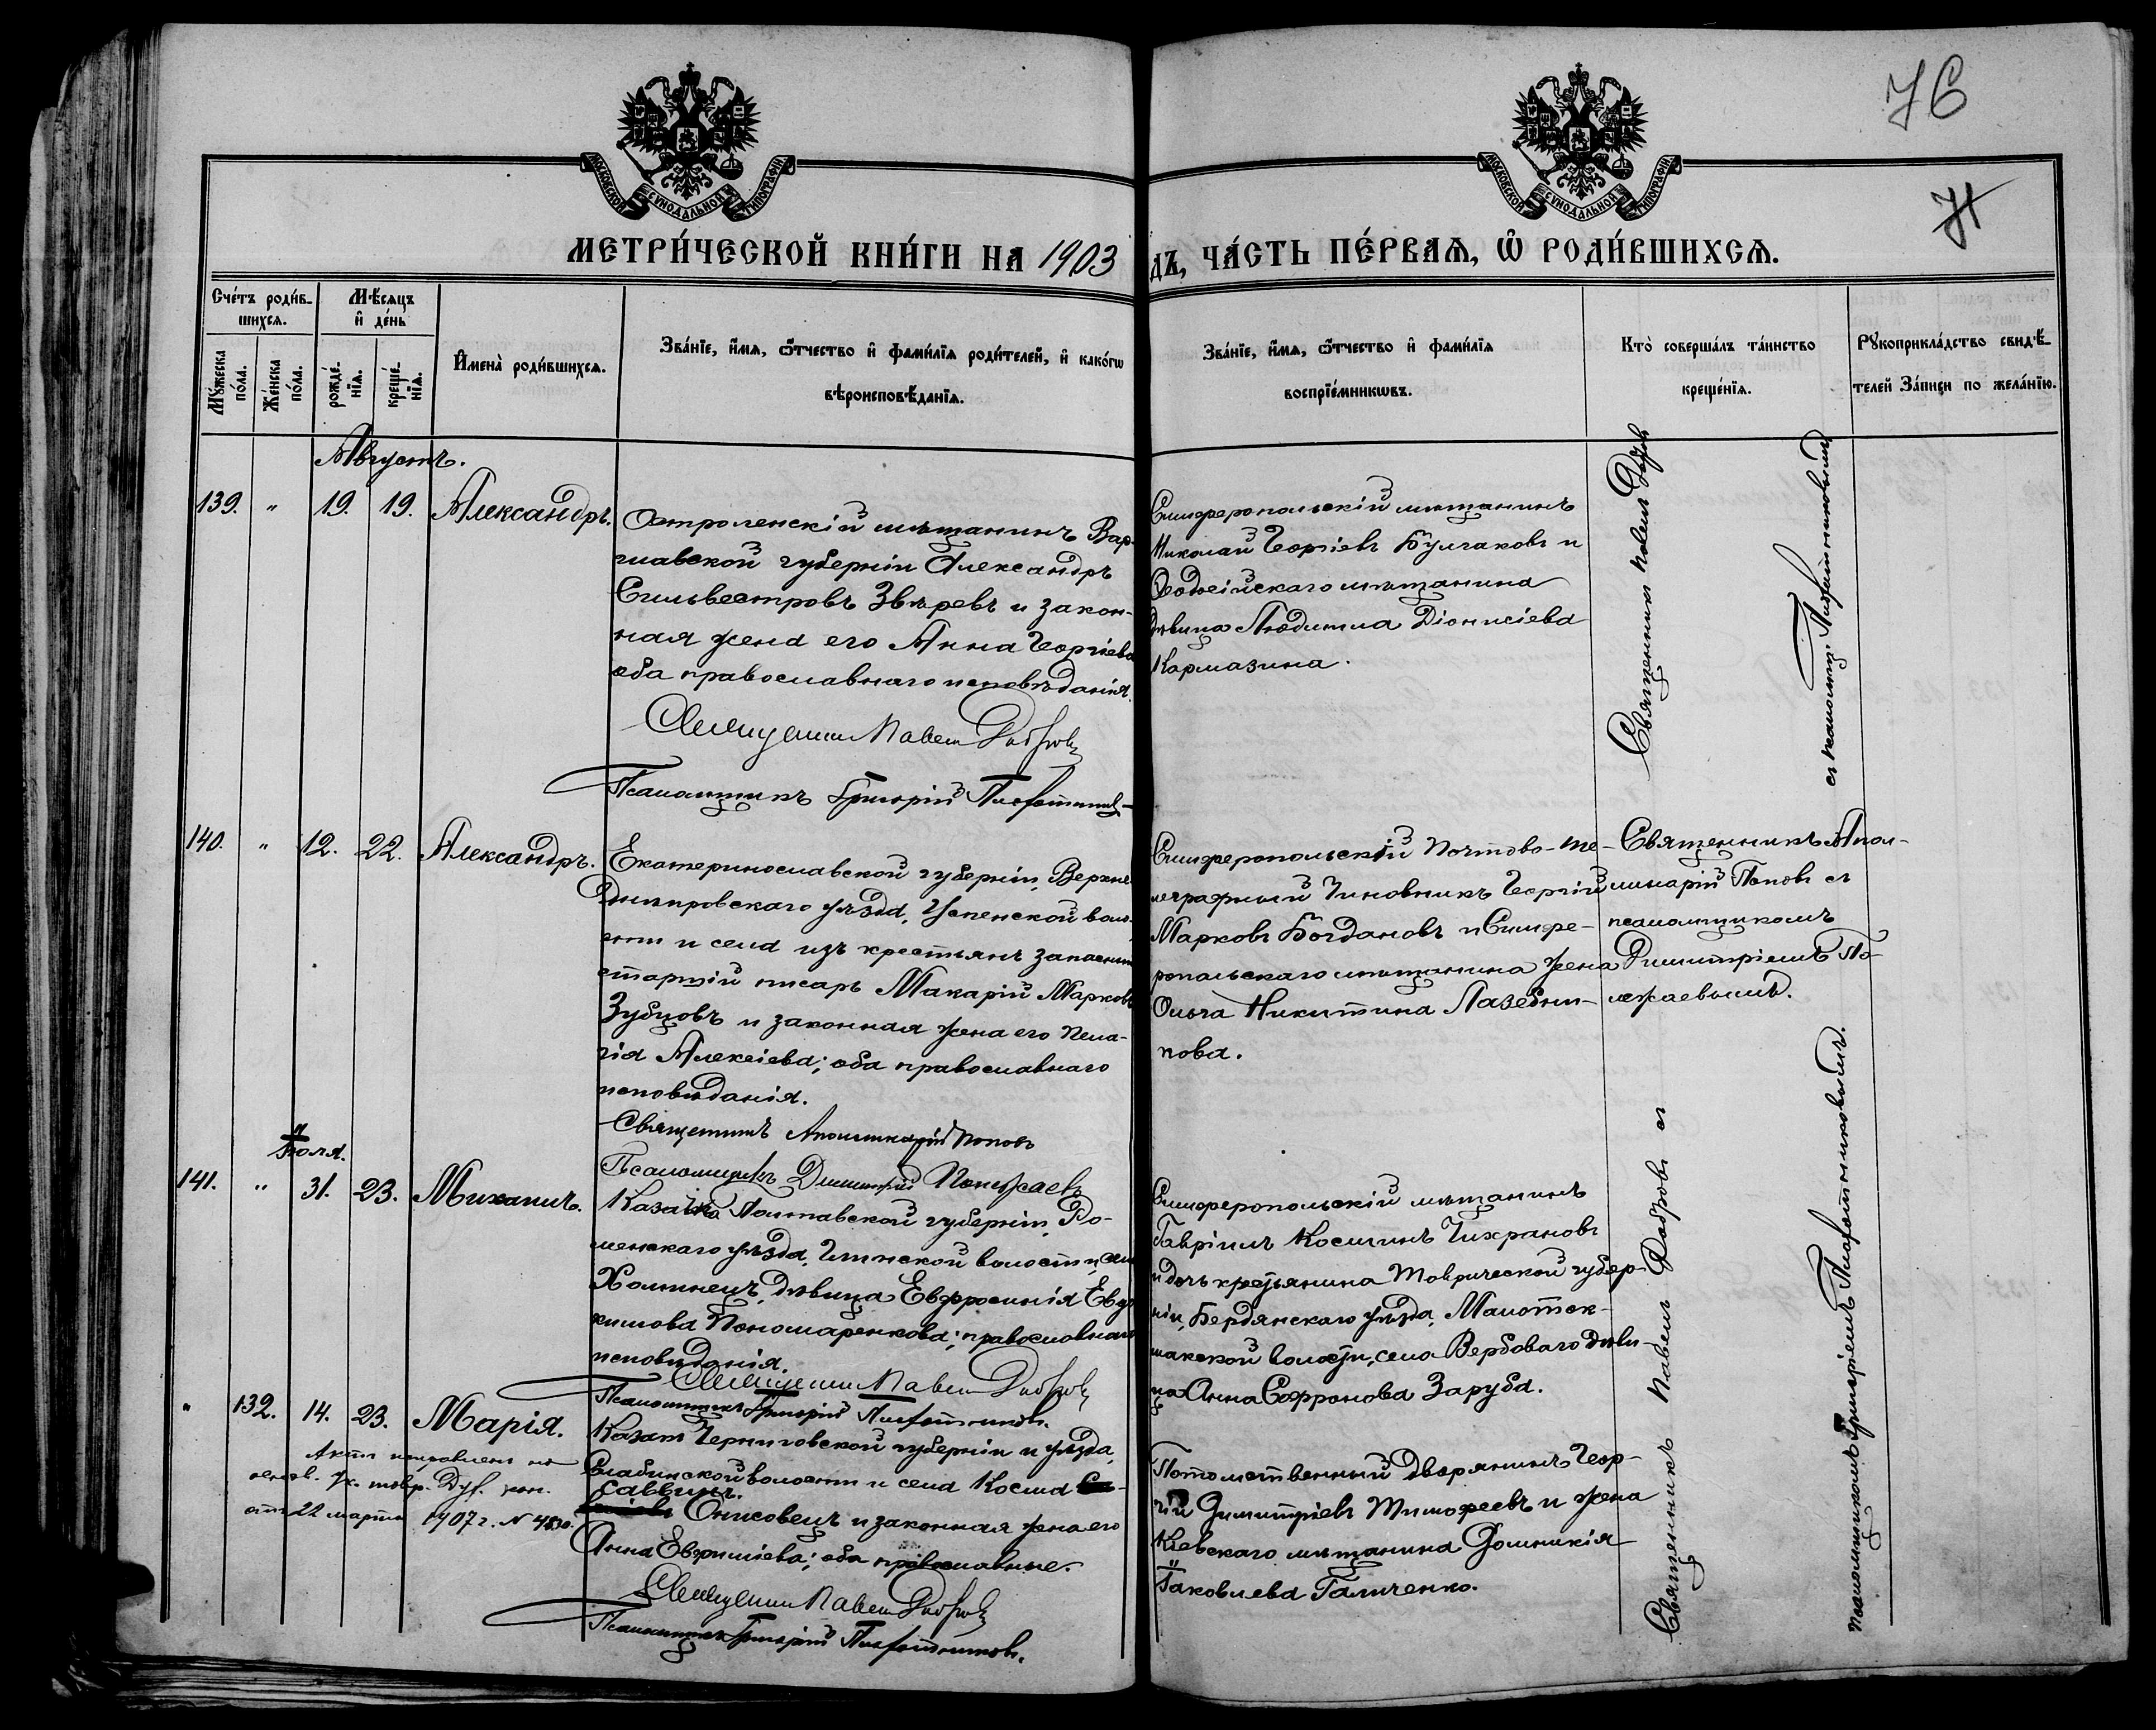 76
71
МОСКОВСКОЙ СУНОДАЛЬНОЙ ТИПОГРАФІИ
МОСКОВСКОЙ СУНОДАЛЬНОЙ ТИПОГРАФІИ
МЕТРИ́ЧЕСКОЙ КНИ́ГИ НА 1903
ДЪ, ЧА́СТЬ ПЕ́РВАЯ, Ѽ РОДИ́ВШИХСЯ.
Сче́тъ роди́в-
шихся.
Мꙋ́жеска
по́ла.
Же́нска
по́ла.
Мѣ́сяцъ
и де́нь
рожде́-
нїя.
креще́-
нїя.
Имена̀ роди́вшихся.
Зва́нїе, и́мя, ѻ҆́тчество и фами́лїя роди́телей, и како́гѡ
вѣроисповѣ́данїя.
Зва́нїе, и́мя, ѻ҆́тчество и фами́лїя
воспрїе́мникѡвъ.
Кто̀ соверша́лъ та́инство
креще́нїя.
Рꙋкоприкла́дство свидѣ́-
телей за́писи по жела́нїю.
Августъ.
139. " 19. 19. Александръ.
Остроленскій мѣщанинъ Вар-
шавской губерніи Александръ
Сильвестровъ Звѣревъ и закон-
ная жена его Анна Георгіева
оба православнаго исповѣданія.
Священникъ Павелъ Добровъ
Псаломщикъ Григорій Плотниковъ
Симферопольскій мѣщанинъ
Николай Георгіевъ Булгаковъ и
Ѳеодосійскаго мѣщанина
дѣвица Людмила Діонисіева
Кармазина.
Священникъ Павелъ Добровъ
съ псаломщ. Плотниковымъ
140. " 12. 22. Александръ.
Екатеринославской губерніи, Верхне-
Днѣпровскаго уѣзда, Успенской воло-
сти и села изъ крестьянъ запасный
старшій писарь Макарій Марковъ
Зубцовъ и законная жена его Пела-
гія Алексіева; оба православнаго
исповѣданія.
Священникъ Аполлинарій Поповъ
Псаломщикъ Димитрій Пополжаевъ
Симферопольскій Почтово-те-
леграфный Чиновникъ Георгій
Марковъ Богдановъ и Симфе-
ропольскаго мѣщанина жена
Ольга Никитина Лазебни-
кова.
Священникъ Апол-
линарій Поповъ съ
псаломщикомъ
Димитріемъ По-
лжаевымъ.
Іюля.
141. " 31. 23. Михаилъ.
Казачка Полтавской губерніи, Ро-
менскаго уѣзда, Глинской волости, села
Хоминецъ, дѣвица Евфросинія Евдо-
кимова Пономаренкова; православнаго
исповѣданія.
Священникъ Павелъ Добровъ
Псаломщикъ Григорій Плотниковъ.
Симферопольскій мѣщанинъ
Гавріилъ Косминъ Чихрановъ
и дочь крестьянина Таврической губер-
ніи, Бердянскаго уѣзда, Малоток-
макской волости, села Вербоваго дѣви-
ца Анна Софронова Заруба.
" 132. 14. 23. Марія.
Актъ направленъ на
22 марта 1907 г. N 4830.
Казакъ Черниговской губерніи и уѣзда,
Слабинской волости и села Косма
Саввинъ.
Онисовецъ и законная жена его
Анна Евфиміева; оба православные.
Священникъ Павелъ Добровъ
Псаломщикъ Григорій Плотниковъ.
Потомственный дворянинъ Геор-
гій Димитріевъ Тимофеевъ и жена
Кіевскаго мѣщанина Домникія
Іаковлева Галиченко.
Священникъ Павелъ Добровъ съ
псаломщикомъ Григоріемъ Плотниковымъ.